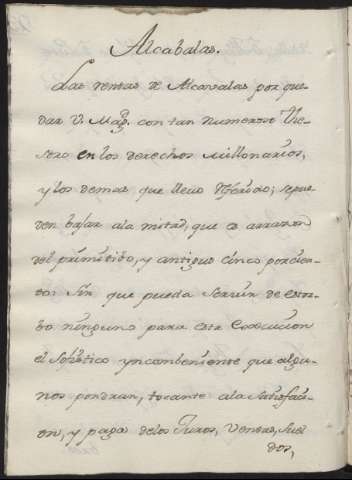 Alcabalas.
Las rentas de Alcavalas por que
dar V. Mag.d con tan numeroso The-
soro en los derechos Millonarios,
y los demas que llevo referido; se pue
den bajar ala mitad, que es a razon
del primitibo, y antiguo cinco por cien-
to: sin que pueda servir de estor-
bo ninguno para esta Execucion
el Sofistico ynconbeniente que algu-
nos pondran, tocante ala Satisfaci-
on, y paga delos Juros, Ventas, Suel
dos,